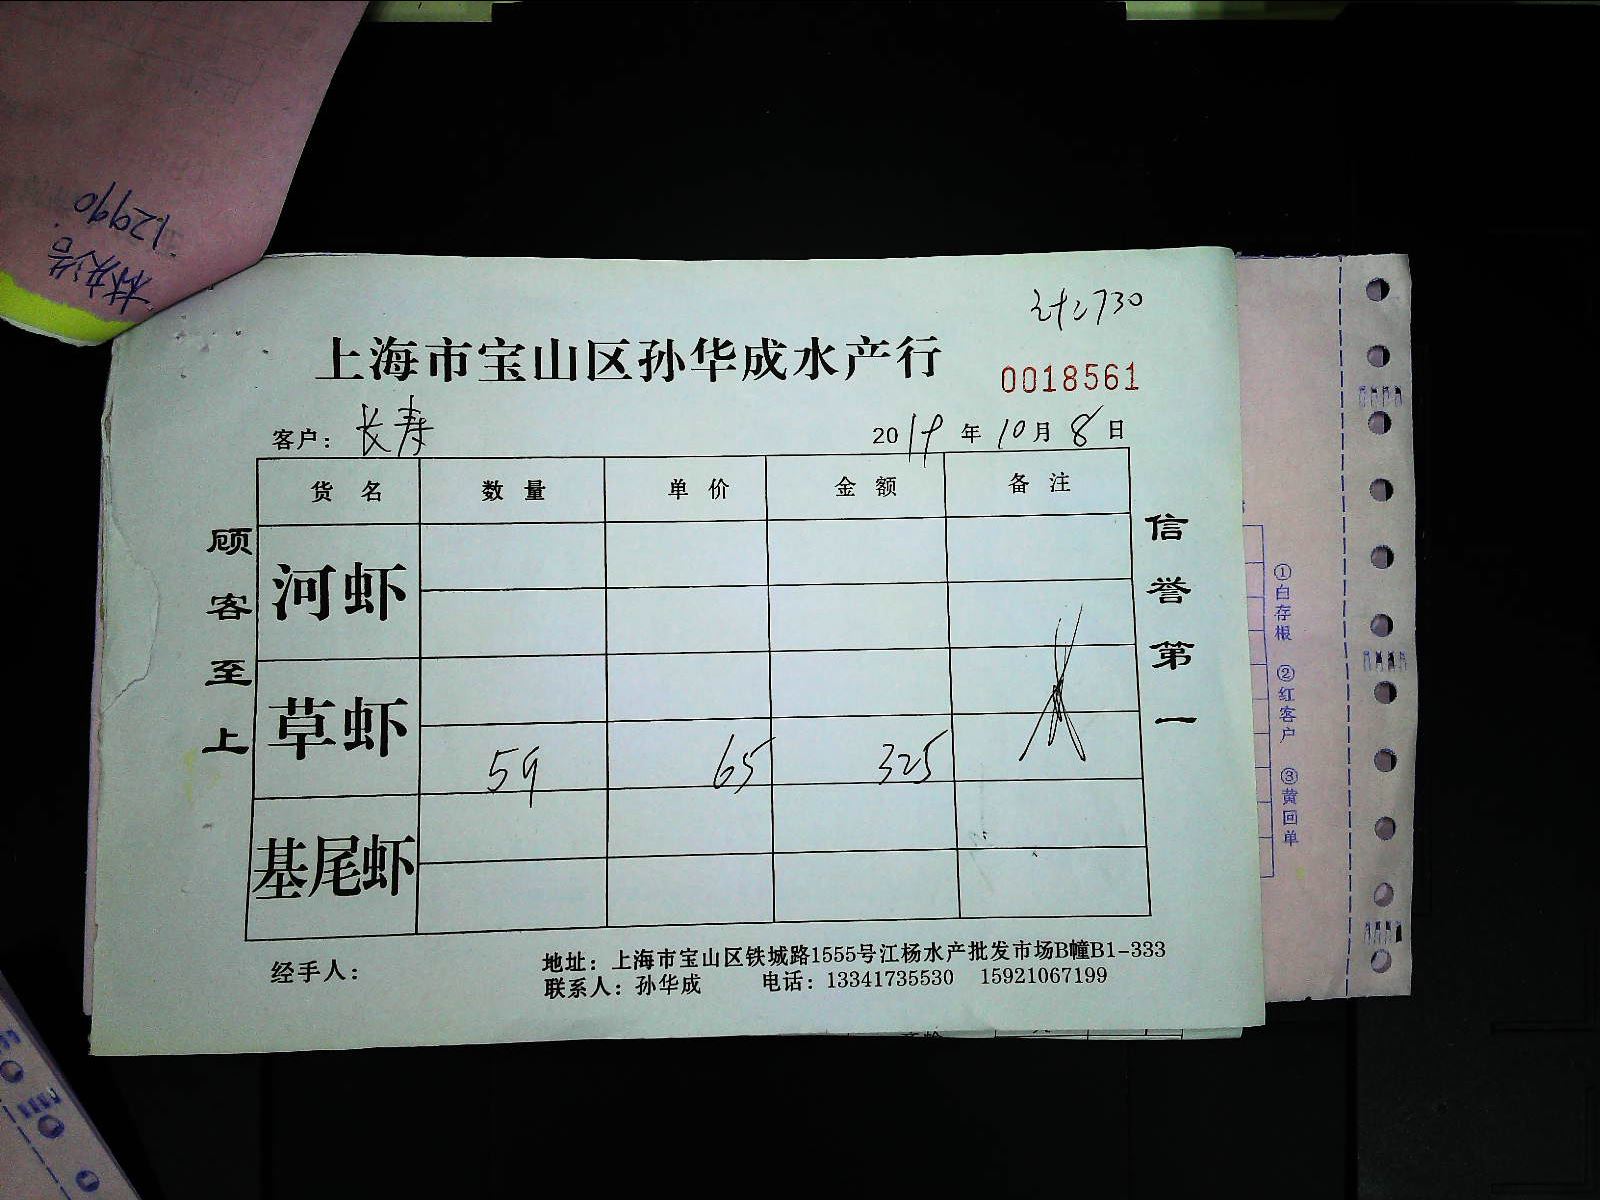 12990
上海市宝山区孙华成水产行
0018561
客户：长寿 2019年10月8日
货名 数量 单价 金额 备注
河虾
草虾
65 325
基尾虾
顾客至上
信誉第一
经手人：
地址：上海市宝山区铁城路1555号江杨水产批发市场B幢B1-333
联系人：孙华成 电话：13341735530 15921067199
①白存根 ②红客户 ③黄回单